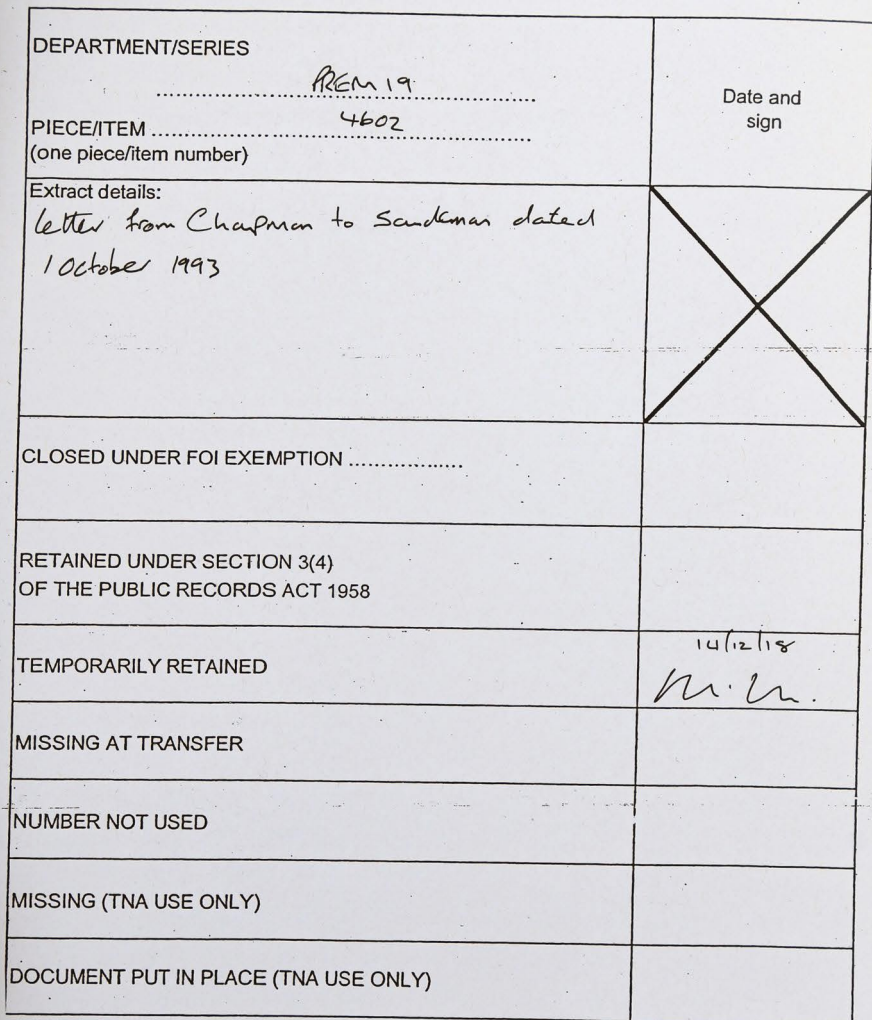 DEPARTMENT/SERIES
PREM 19
Date and
sign
PIECE/ITEM
4602
(one piece/item number)
Extract details:
letter from Chapman to Sandeman dated
1 October 1993
CLOSED UNDER FOI EXEMPTION
RETAINED UNDER SECTION 3(4)
OF THE PUBLIC RECORDS ACT 1958
14/12/18
TEMPORARILY RETAINED
MISSING AT TRANSFER
NUMBER NOT USED
MISSING (TNA USE ONLY)
DOCUMENT PUT IN PLACE (TNA USE ONLY)